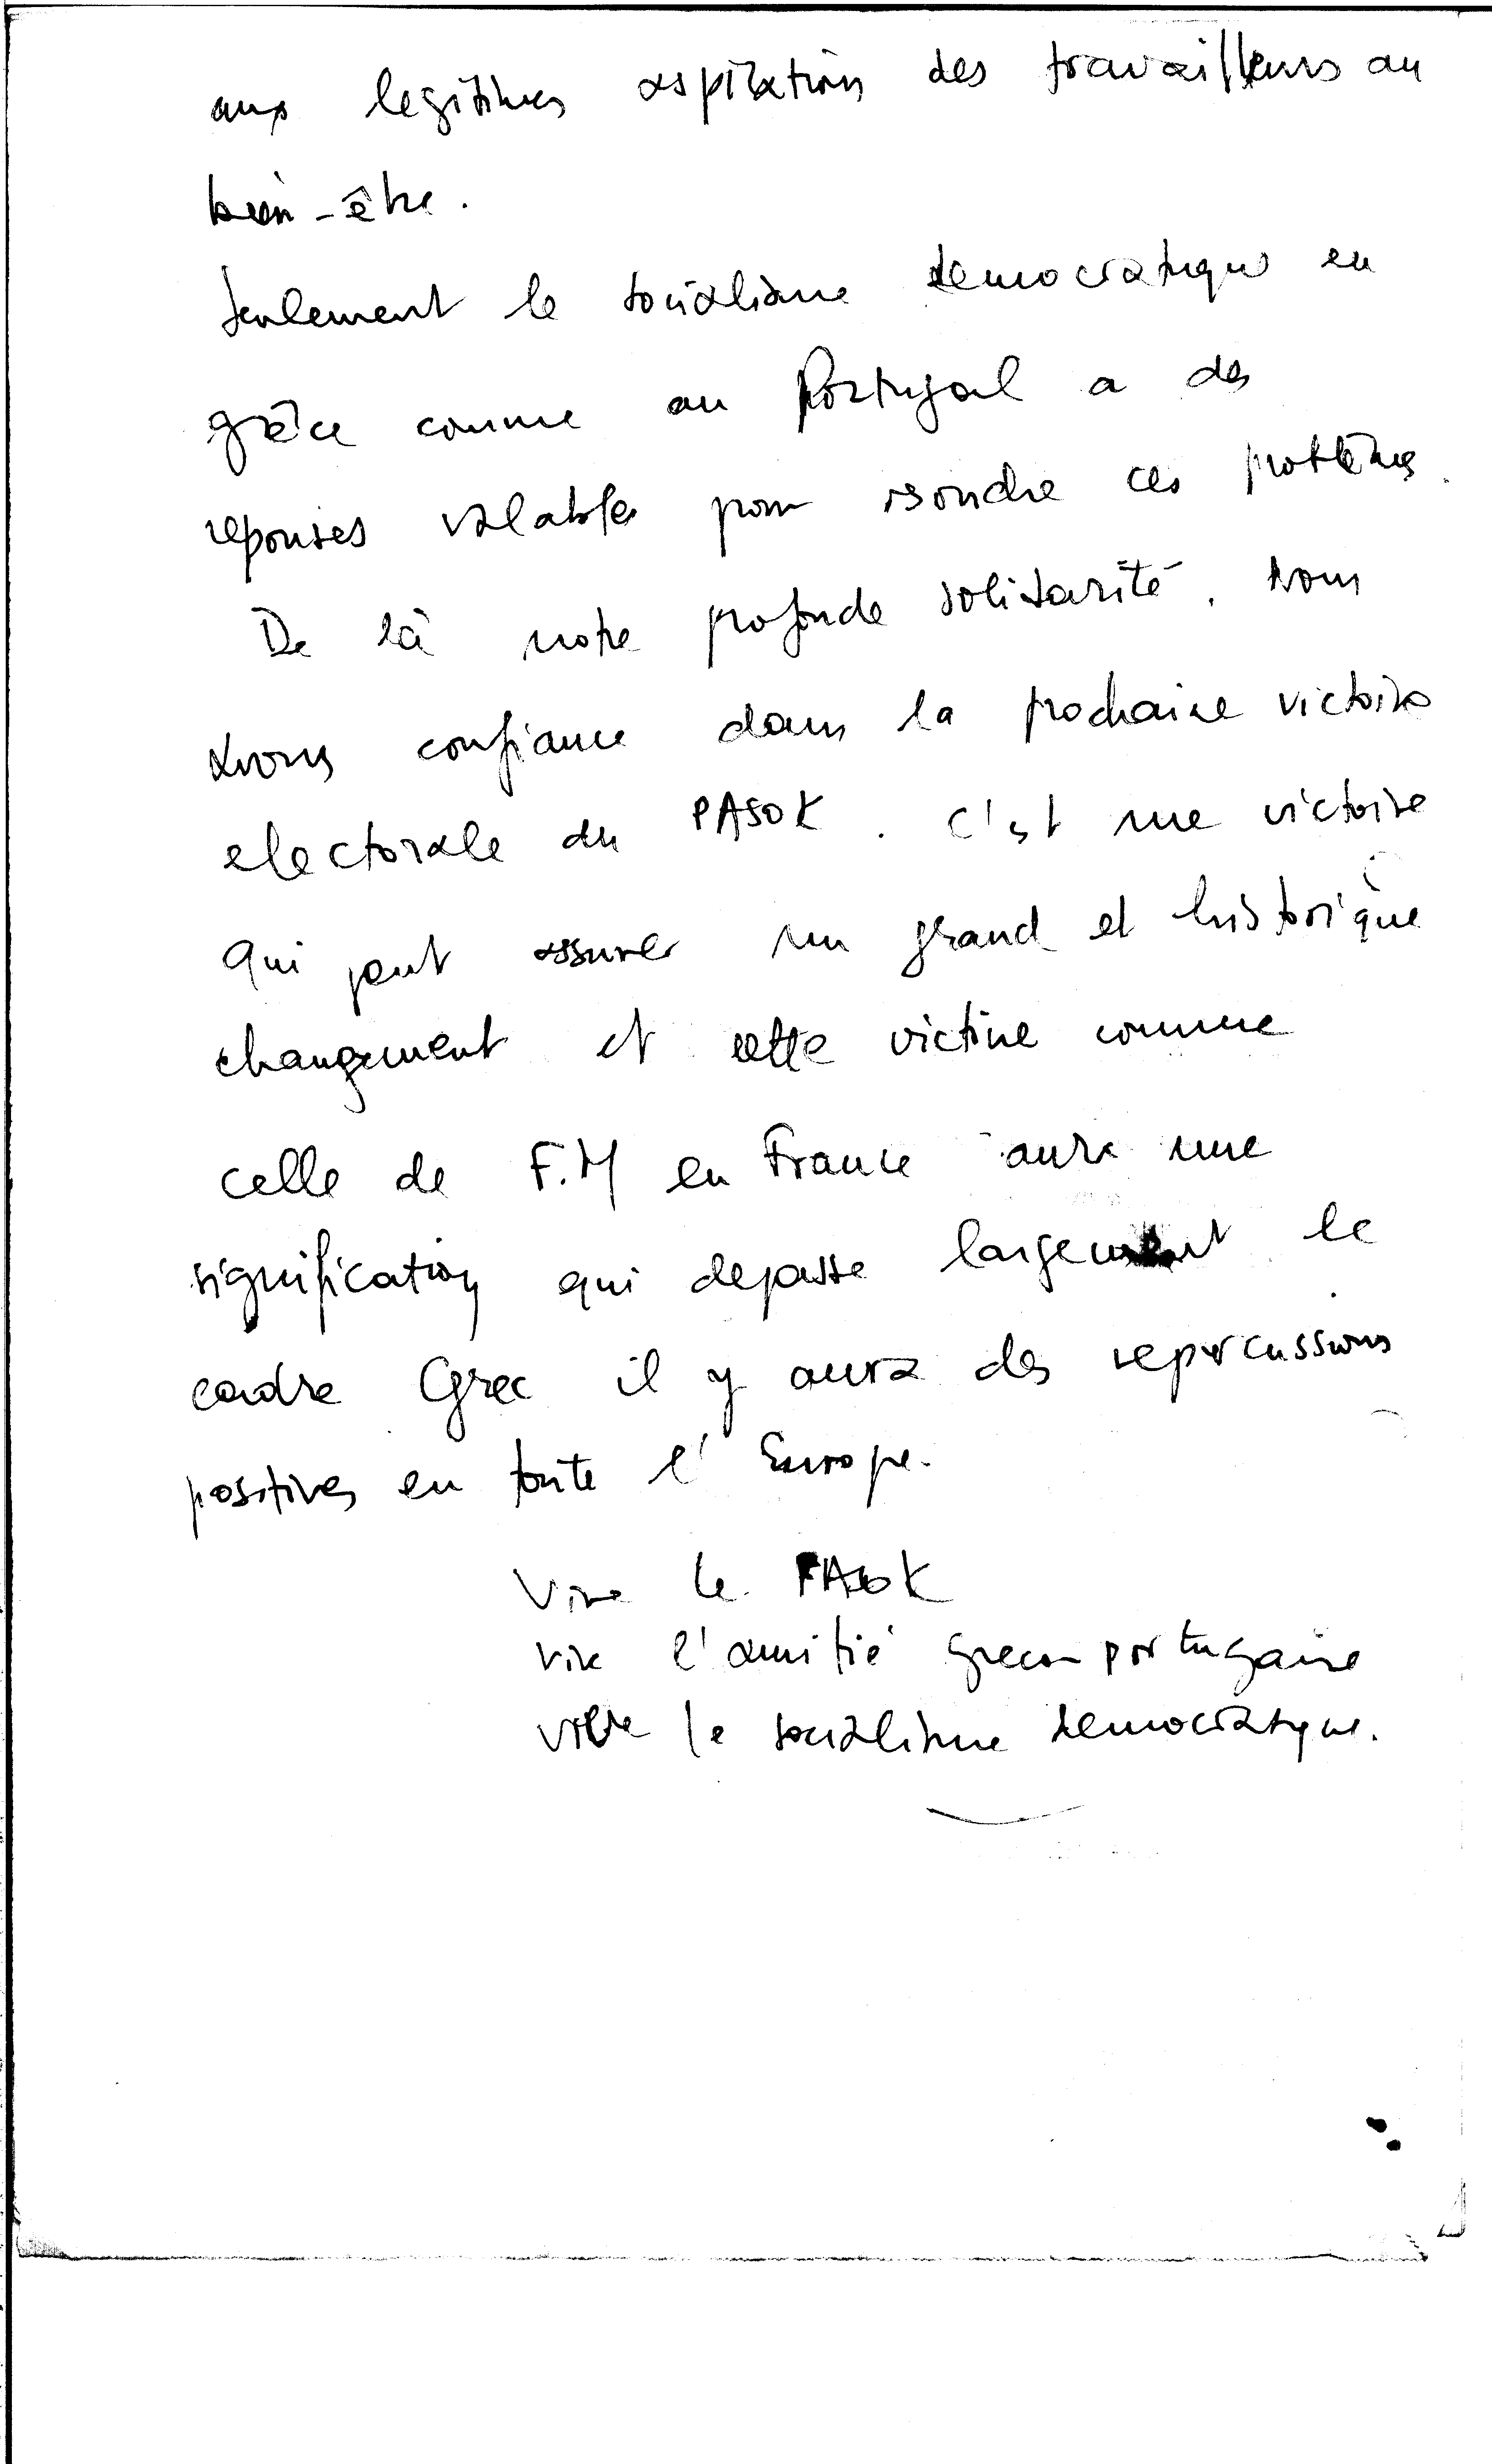 aux legitimes aspirations des travailleurs au
bien-être.
Seulement le socialisme democratique en
grèce comme au Portugal a des
reponses valables pour resoudre ces problèmes.
De là notre profonde solidarité. Nous
avons confiance dans la prochaine victoire
electorale du PASOK. C'est une victoire
qui peut assurer un grand et historique
changement et cette victoire comme
celle de F.M en France aura une
signification qui depasse largement le
cadre Grec il y aura des repercussions
positives en toute l'Europe.
Vive le PASOK
vive l'amitié greco-portugaise
vive le socialisme democratique.